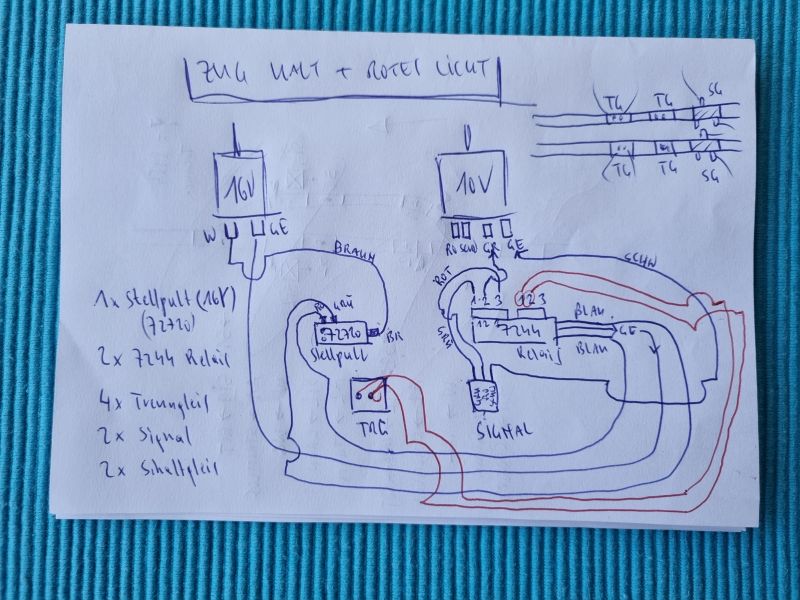 ZUG HALT + ROTES LICHT
TG TG SG
TG TG SG
16V
10V
W GE
GR GE
BRAUN
ROT
SCHW
1x Stellpult (16V)
(72720)
GRÜ
72720
BR
Stellpult
1 2 3
1 2 3
1 2
7244
Relais
BLAU
GE
BLAU
2x 7244 Relais
4x Trenngleis
TRG
SIGNAL
2x Signal
2x Schaltgleis